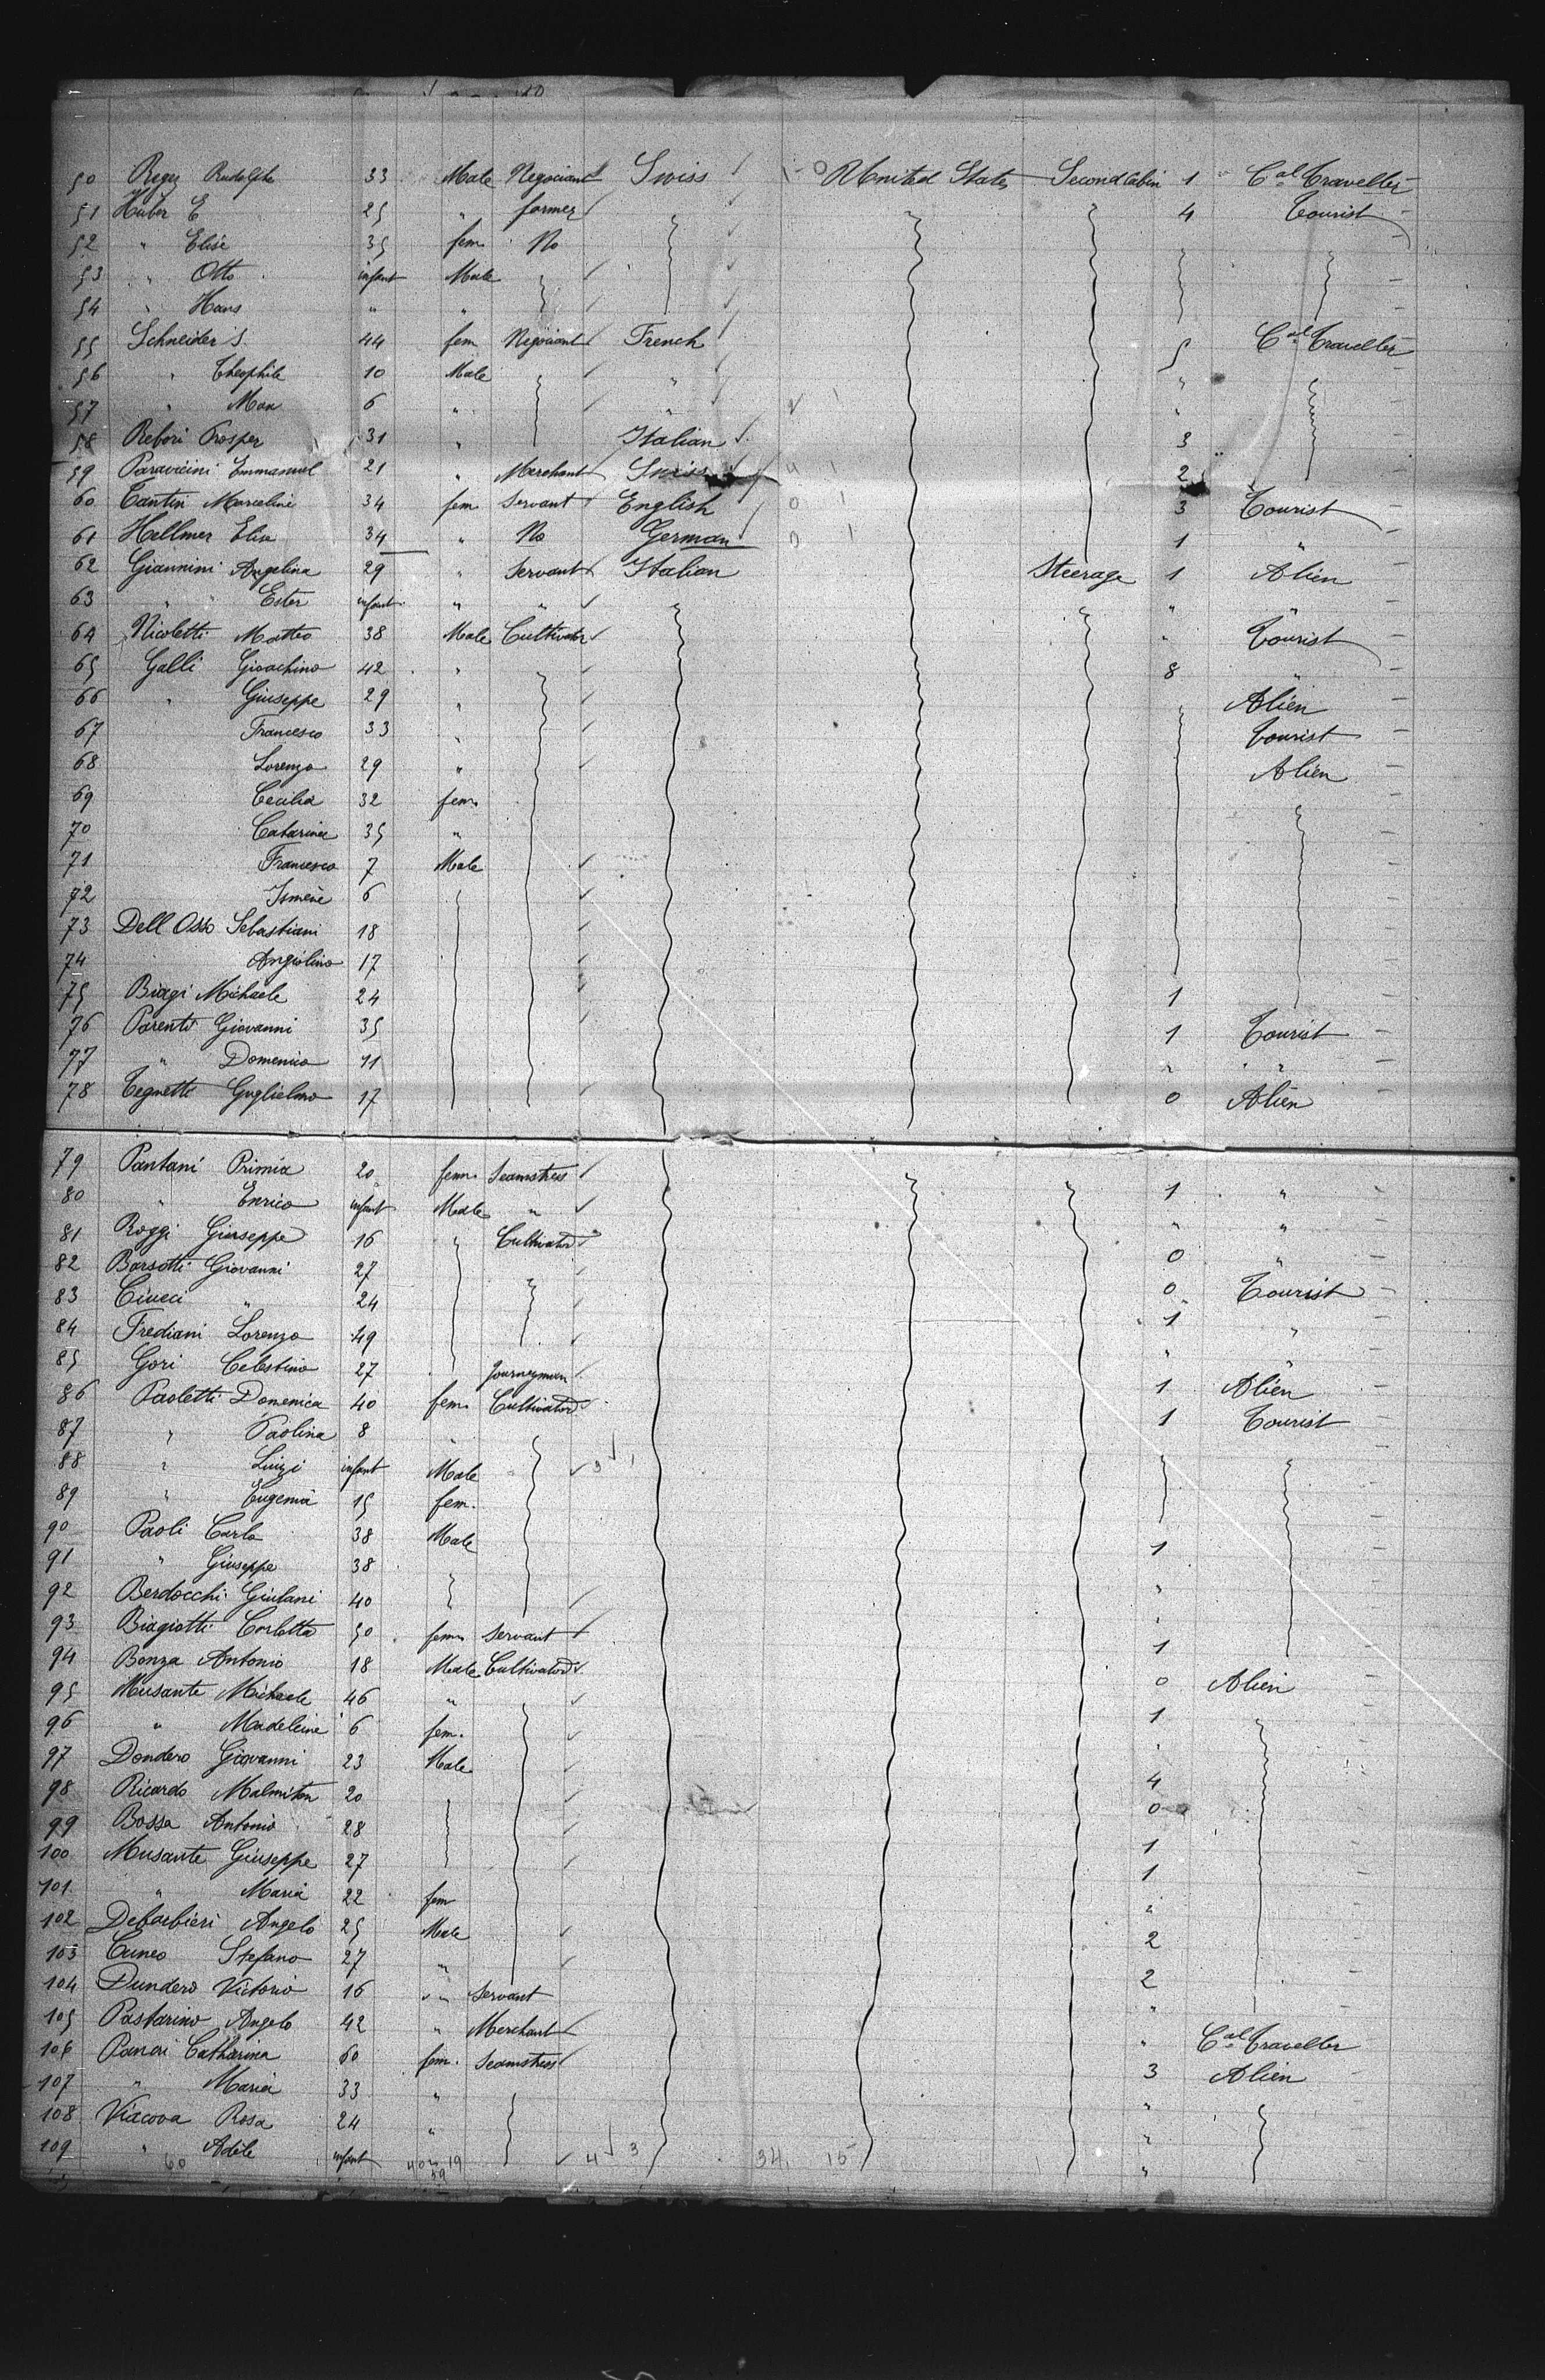 50 Regez Rudolphe 33 Male Negociant Swiss United States Second Cabin 1 Cal Traveller
51 Huber E 25 " farmer 4 Tourist
52 " Elise 35 fem No
53 " Otto infant Male
54 " Hans " "
55 Schneider S. 44 fem Negociant French 5 Cal Traveller
56 " Theophile 10 Male " "
57 " Max 6 " " "
58 Rebori Prosper 31 " Italian 3
59 Paravicini Emmanuel 21 " Merchant Swiss 2
60 Tantin Marceline 34 fem Servant English 3 Tourist
61 Hellmer Elisa 34 " No German 1 "
62 Giannini Angelina 29 " Servant Italian Steerage 1 Alien
63 " " Ester infant " " " "
64 Nicoletti Matteo 38 Male Cultivator " Tourist
65 Galli Gioachino 42 " 8 "
66 " Giuseppe 29 " " Alien
67 Francesco 33 " Tourist
68 Lorenzo 29 " Alien
69 Cecilia 32 fem.
70 Catarina 35 "
71 Francesco 7 Male
72 Ismene 6
73 Dell Osso Sebastiani 18
74 Angiolino 17
75 Biagi Michaele 24 1
76 Parenti Giovanni 35 1 Tourist
77 " Domenico 11 " " "
78 Tegnetti Guglielmo 17 0 Alien
79 Pantani Primia 20 fem. Seamstress 1 "
80 " Enrico infant Male " " "
81 Roggi Giuseppe 16 " Cultivator 0 "
82 Barsotti Giovanni 27 0 Tourist
83 Ciucci " 24 1 "
84 Frediani Lorenzo 49 " "
85 Gori Celestino 27 Journeyman 1 Alien
86 Paoletti Domenica 40 fem. Cultivator 1 Tourist
87 " Paolina 8 "
88 " Luigi infant Male
89 " Eugenia 15 fem.
90 Paoli Carlo 38 Male 1
91 " Giuseppe 38 "
92 Berdocchi Giuliani 40 "
93 Biagiotti Carlotta 50 fem. Servant 1
94 Bonza Antonio 18 Male Cultivator 0 Alien
95 Musante Michaele 46 " 1
96 " Madeleine 6 fem. "
97 Dondero Giovanni 23 Male 4
98 Ricardo Malmiton 20 0
99 Bossa Antonio 28 1
100 Musante Giuseppe 27 1
101 " Maria 22 fem "
102 Debarbieri Angelo 25 Male 2
103 Cuneo Stefano 27 " 2
104 Dundero Victorio 16 " Servant "
105 Pastorino Angelo 42 " Merchant " Cal Traveller
106 Panari Catharina 60 fem. Seamstress 3 Alien
107 " Maria 33 " "
108 Viacova Rosa 24 " "
109 " Adele infant "
60 40 19 59 4 3 34 15